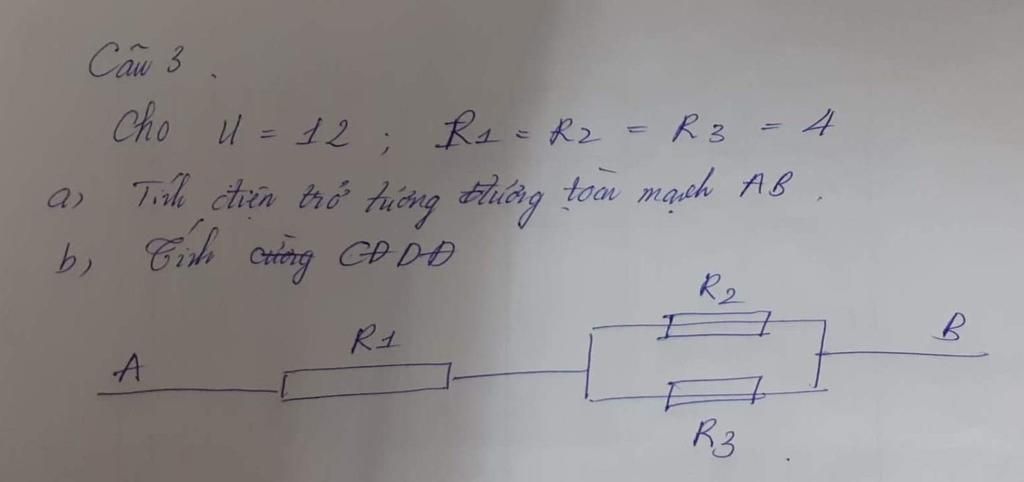 Câu 3.
Cho U = 12 ; R1 = R2 = R3 = 4
a) Tính điện trở tương đương toàn mạch AB.
b) Tính cường CĐDĐ
R2
A R1 B
R3